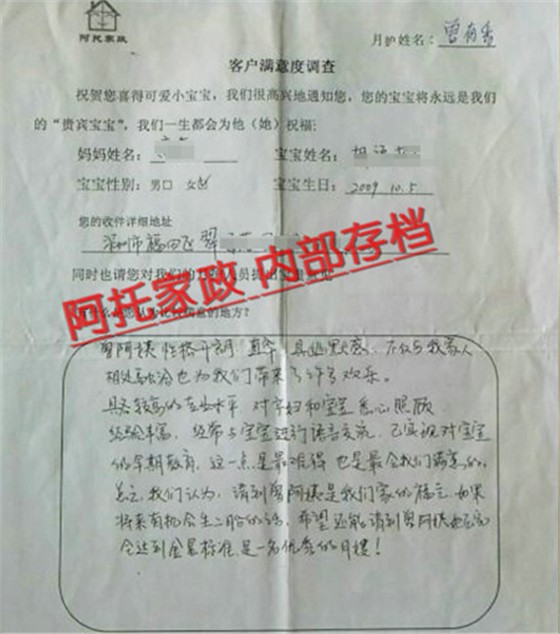 阿托家政
月护姓名：曾有香
客户满意度调查
祝贺您喜得可爱小宝宝，我们很高兴地通知您，您的宝宝将永远是我们
的“贵宾宝宝”，我们一生都会为他（她）祝福：
妈妈姓名： 宝宝姓名：
宝宝性别：男口 女 宝宝生日：2009 10.5
您的收件详细地址
深圳市福田区翠
同时也请您对我们的 人员提出
阿托家政 内部存档
的地方？
曾阿姨性格开朗、直率、具幽默感，不仅与我家人
相处融洽也为我们带来了许多欢乐。
具备较高的专业水平，对孕妇和宝宝悉心照顾
经验丰富，经常与宝宝进行语言交流，已实现对宝宝
的早期教育，这一点是最难得也是最令我们满意的。
总之，我们认为，请到曾阿姨是我们家的福气，如果
将来有机会生二胎的话，希望还能请到曾阿姨
达到金星标准，是一名优秀的月嫂！